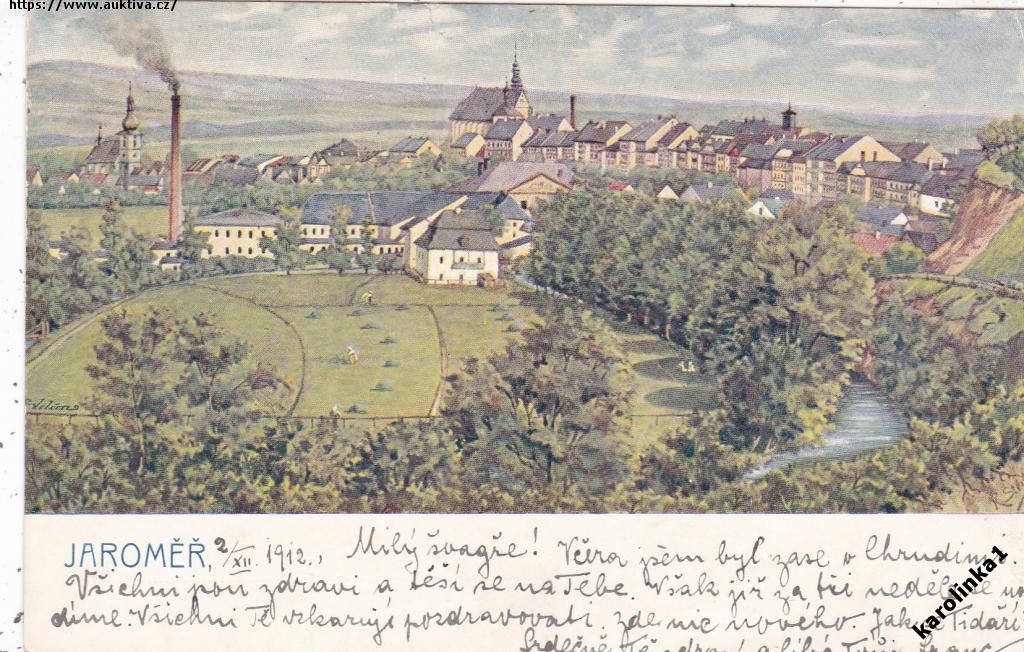 https://www.auktiva.cz/
JAROMĚŘ, 2/XII. 1912., Milý švagře! Včera jsem byl zase v Chrudimi.
Všichni jsou zdravi a těší se na Tebe. Však již za tři neděle se
díme. Všichni Tě vzkazují pozdravovati. Zde nic nového. Jak se Ti daří
Srdečně Tě zdraví a líbá Tvůj Franc
karolinka1